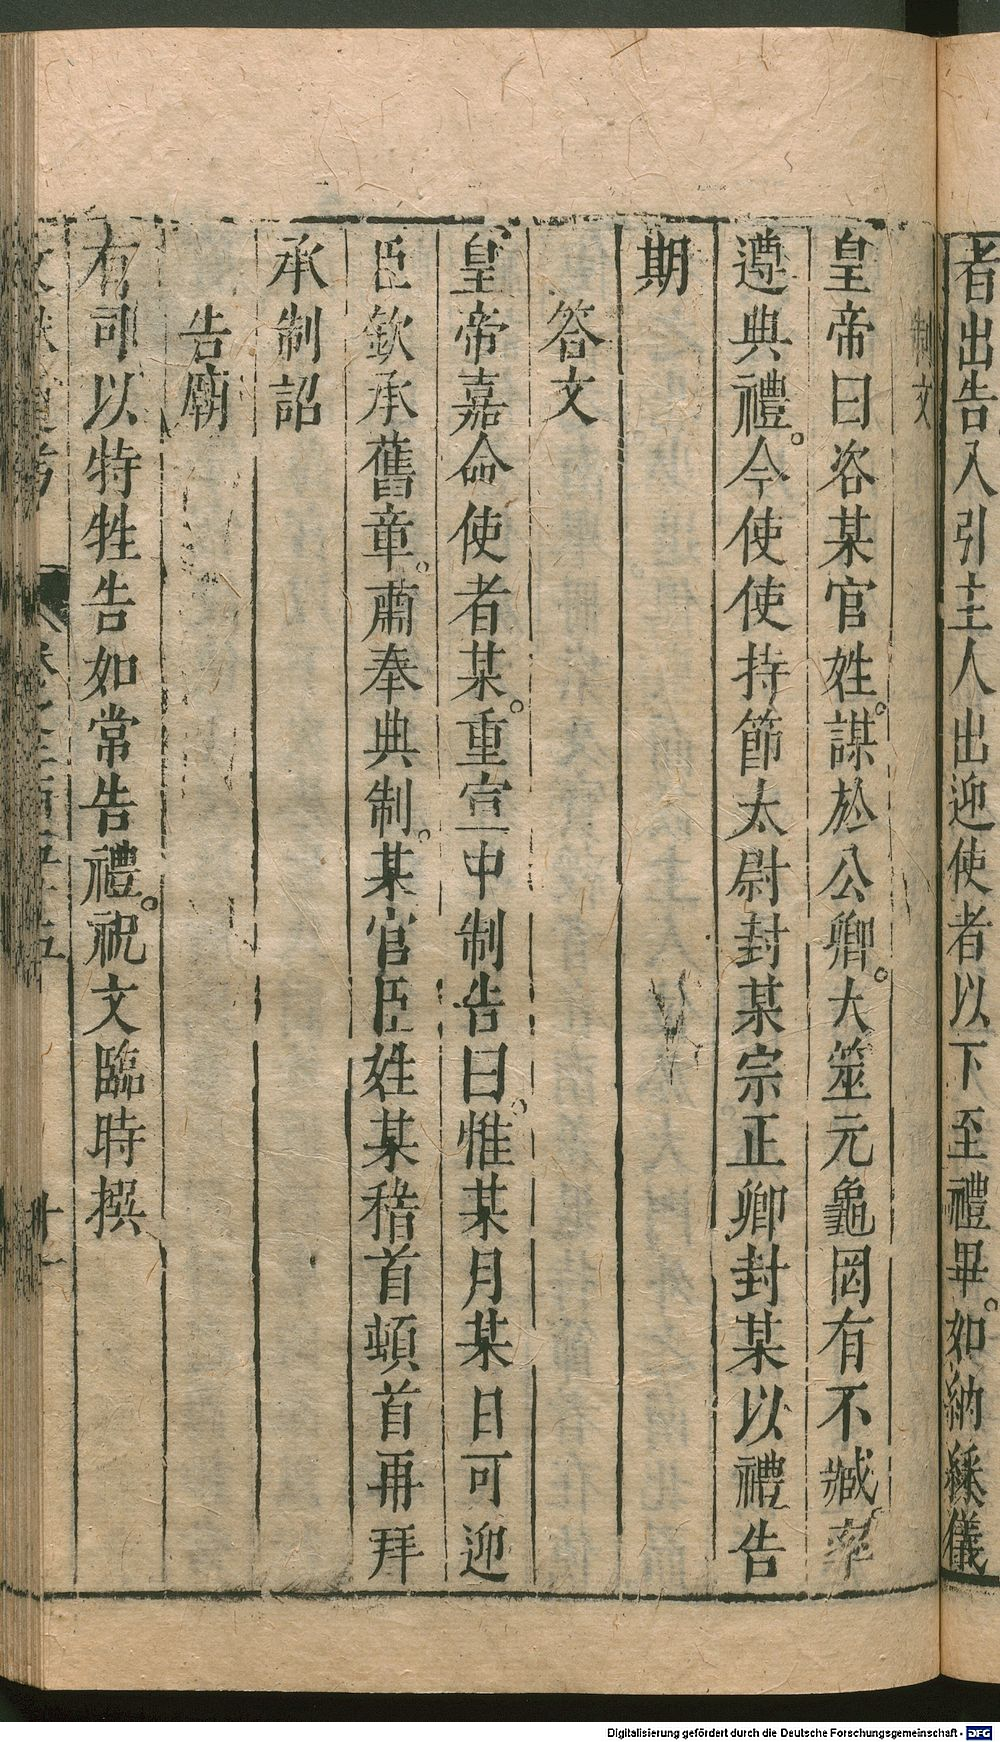 者出告入引主人出迎使者以下至禮畢。如納綵儀
制文
皇帝曰咨某官姓。謀於公卿。大筮元龜罔有不臧。率
遵典禮。今使使持節太尉封某宗正卿封某以禮告
期
答文
皇帝嘉命使者某。重宣中制告曰。惟某月某日可迎
臣欽承舊章。肅奉典制。某官臣姓某稽首頓首再拜
承制詔
告廟
有司以特牲告如常告禮。祝文臨時撰
卷之二百五十五
廿一
Digitalisierung gefördert durch die Deutsche Forschungsgemeinschaft - DFG